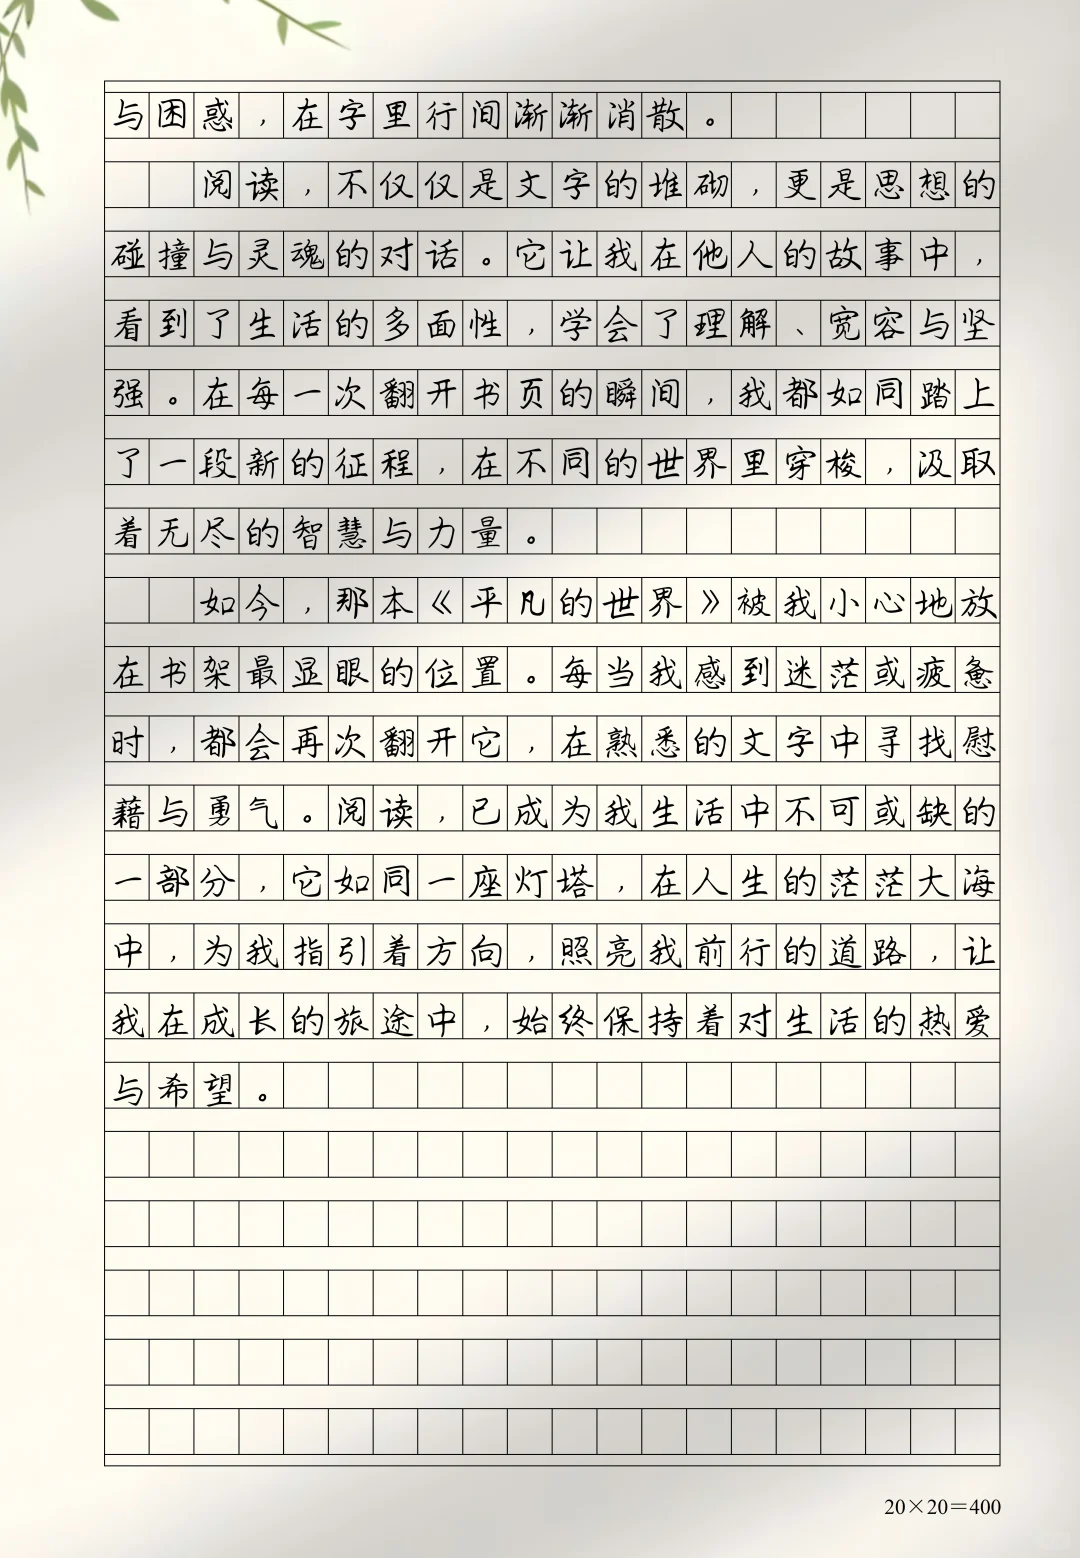 与困惑，在字里行间渐渐消散。
阅读，不仅仅是文字的堆砌，更是思想的
碰撞与灵魂的对话。它让我在他人的故事中，
看到了生活的多面性，学会了理解、宽容与坚
强。在每一次翻开书页的瞬间，我都如同踏上
了一段新的征程，在不同的世界里穿梭，汲取
着无尽的智慧与力量。
如今，那本《平凡的世界》被我小心地放
在书架最显眼的位置。每当我感到迷茫或疲惫
时，都会再次翻开它，在熟悉的文字中寻找慰
藉与勇气。阅读，已成为我生活中不可或缺的
一部分，它如同一座灯塔，在人生的茫茫大海
中，为我指引着方向，照亮我前行的道路，让
我在成长的旅途中，始终保持着对生活的热爱
与希望。
20×20＝400